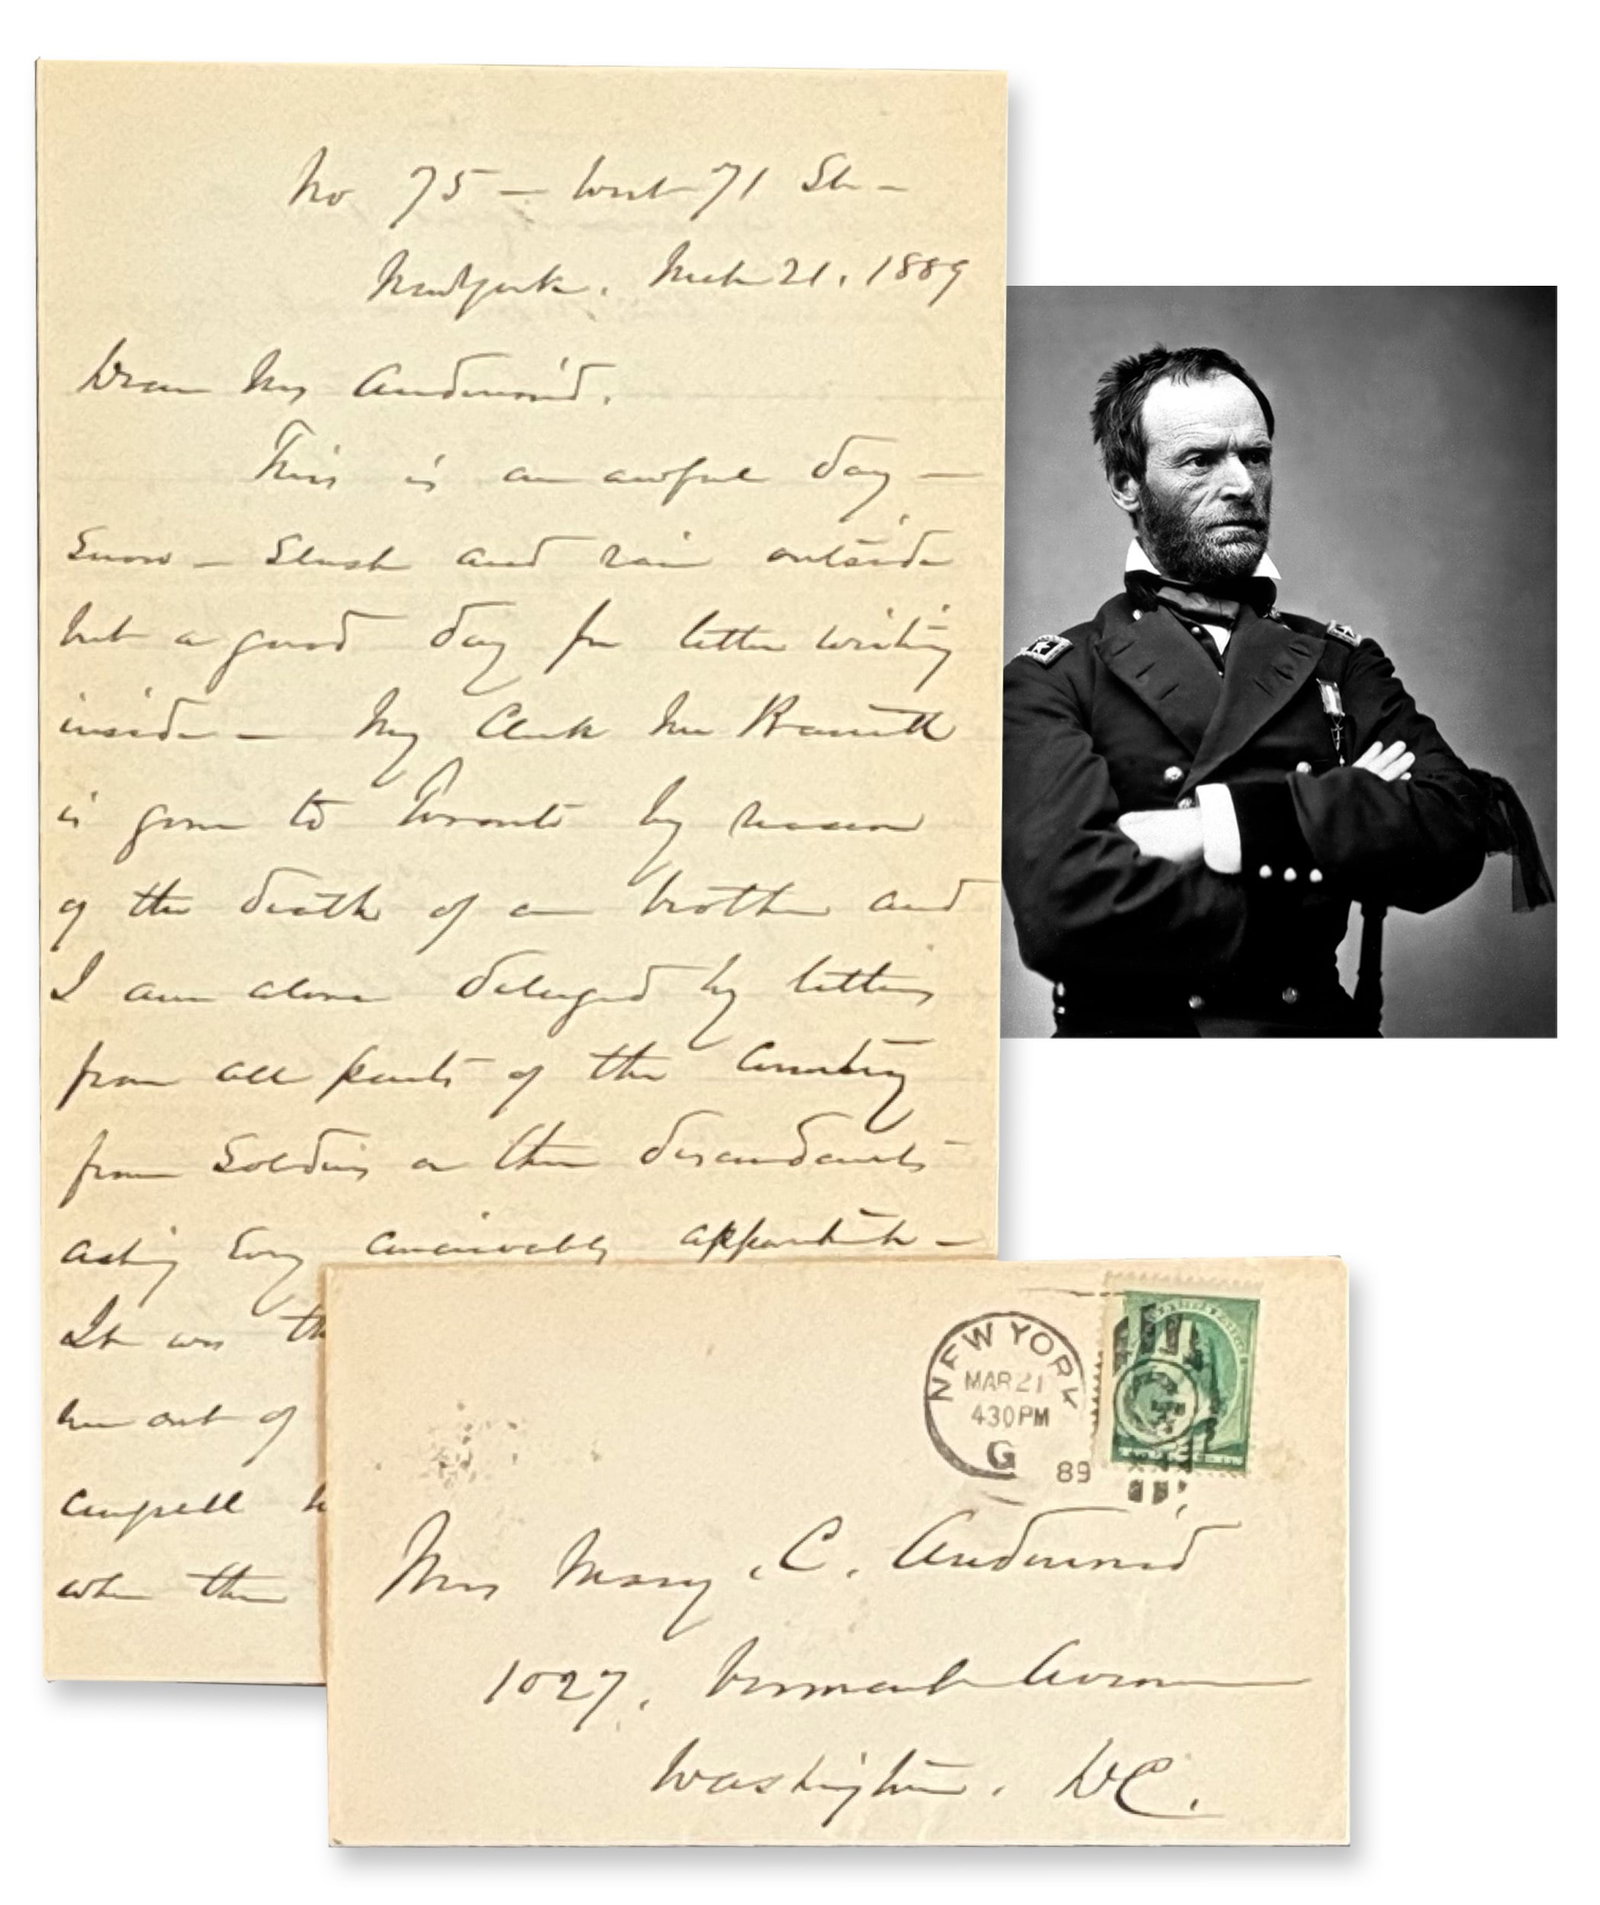 No 75 – West 71 St –
New York. Mch 21, 1889
Dear Mrs Audenried.
This is an awful day –
Snow – Slush and rain outside
but a good day for letter writing
inside – My Clerk Mr Barrett
is gone to Toronto by reason
of the death of a brother and
I am alone deluged by letters
from all parts of the Country
from Soldiers or their descendants
asking Every conceivably
It was th
me out of
compell
when the
NEW YORK
MAR 21
430PM
G
89
Mrs Mary C. Audenried
1027, Vermont Avenue
Washington. DC.